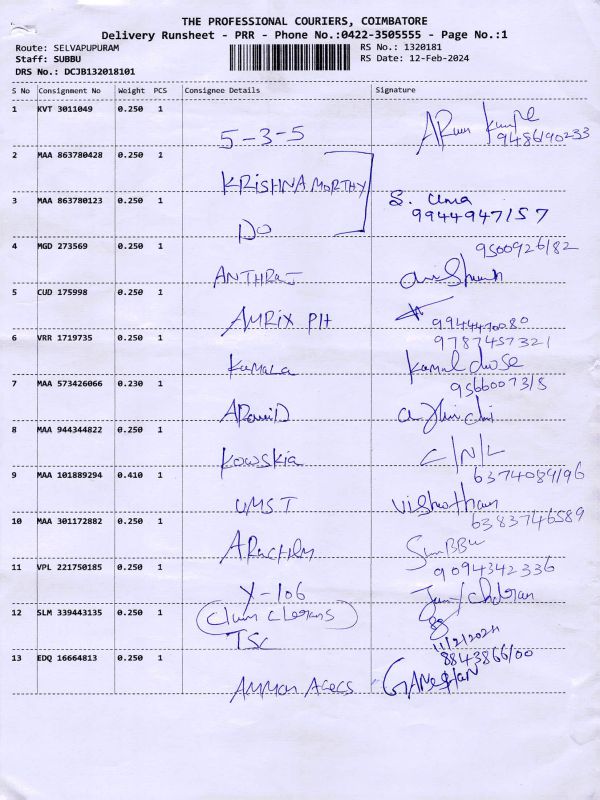 THE PROFESSIONAL COURIERS, COIMBATORE
Delivery Runsheet - PRR - Phone No.:0422-3505555 - Page No.:1
Route: SELVAPUPURAM RS No.: 1320181
Staff: SUBBU RS Date: 12-Feb-2024
DRS No.: DCJB132018101
S No Consignment No Weight PCS Consignee Details Signature
1 KVT 3011049 0.250 1
5-3-5 9486190233
2 MAA 863780428 0.250 1
KRISHNA MORTHY
3 MAA 863780123 0.250 1 S. Uma
DO 9944947157
4 MGD 273569 0.250 1 9500926182
ANTHRAJ
5 CUD 175998 0.250 1
AMRIX PH 9944470080
6 VRR 1719735 0.250 1 9787457321
Kamala
7 MAA 573426066 0.230 1 9566007315
8 MAA 944344822 0.250 1
Kowskia C/N/L
9 MAA 101889294 0.410 1 6374089196
UMST
10 MAA 301172882 0.250 1 6383746589
SUBBU
11 VPL 221750185 0.250 1 9094342336
Y-106
12 SLM 339443135 0.250 1
TSC 11/2/2024
13 EDQ 16664813 0.250 1 8843866100
GANESHAN